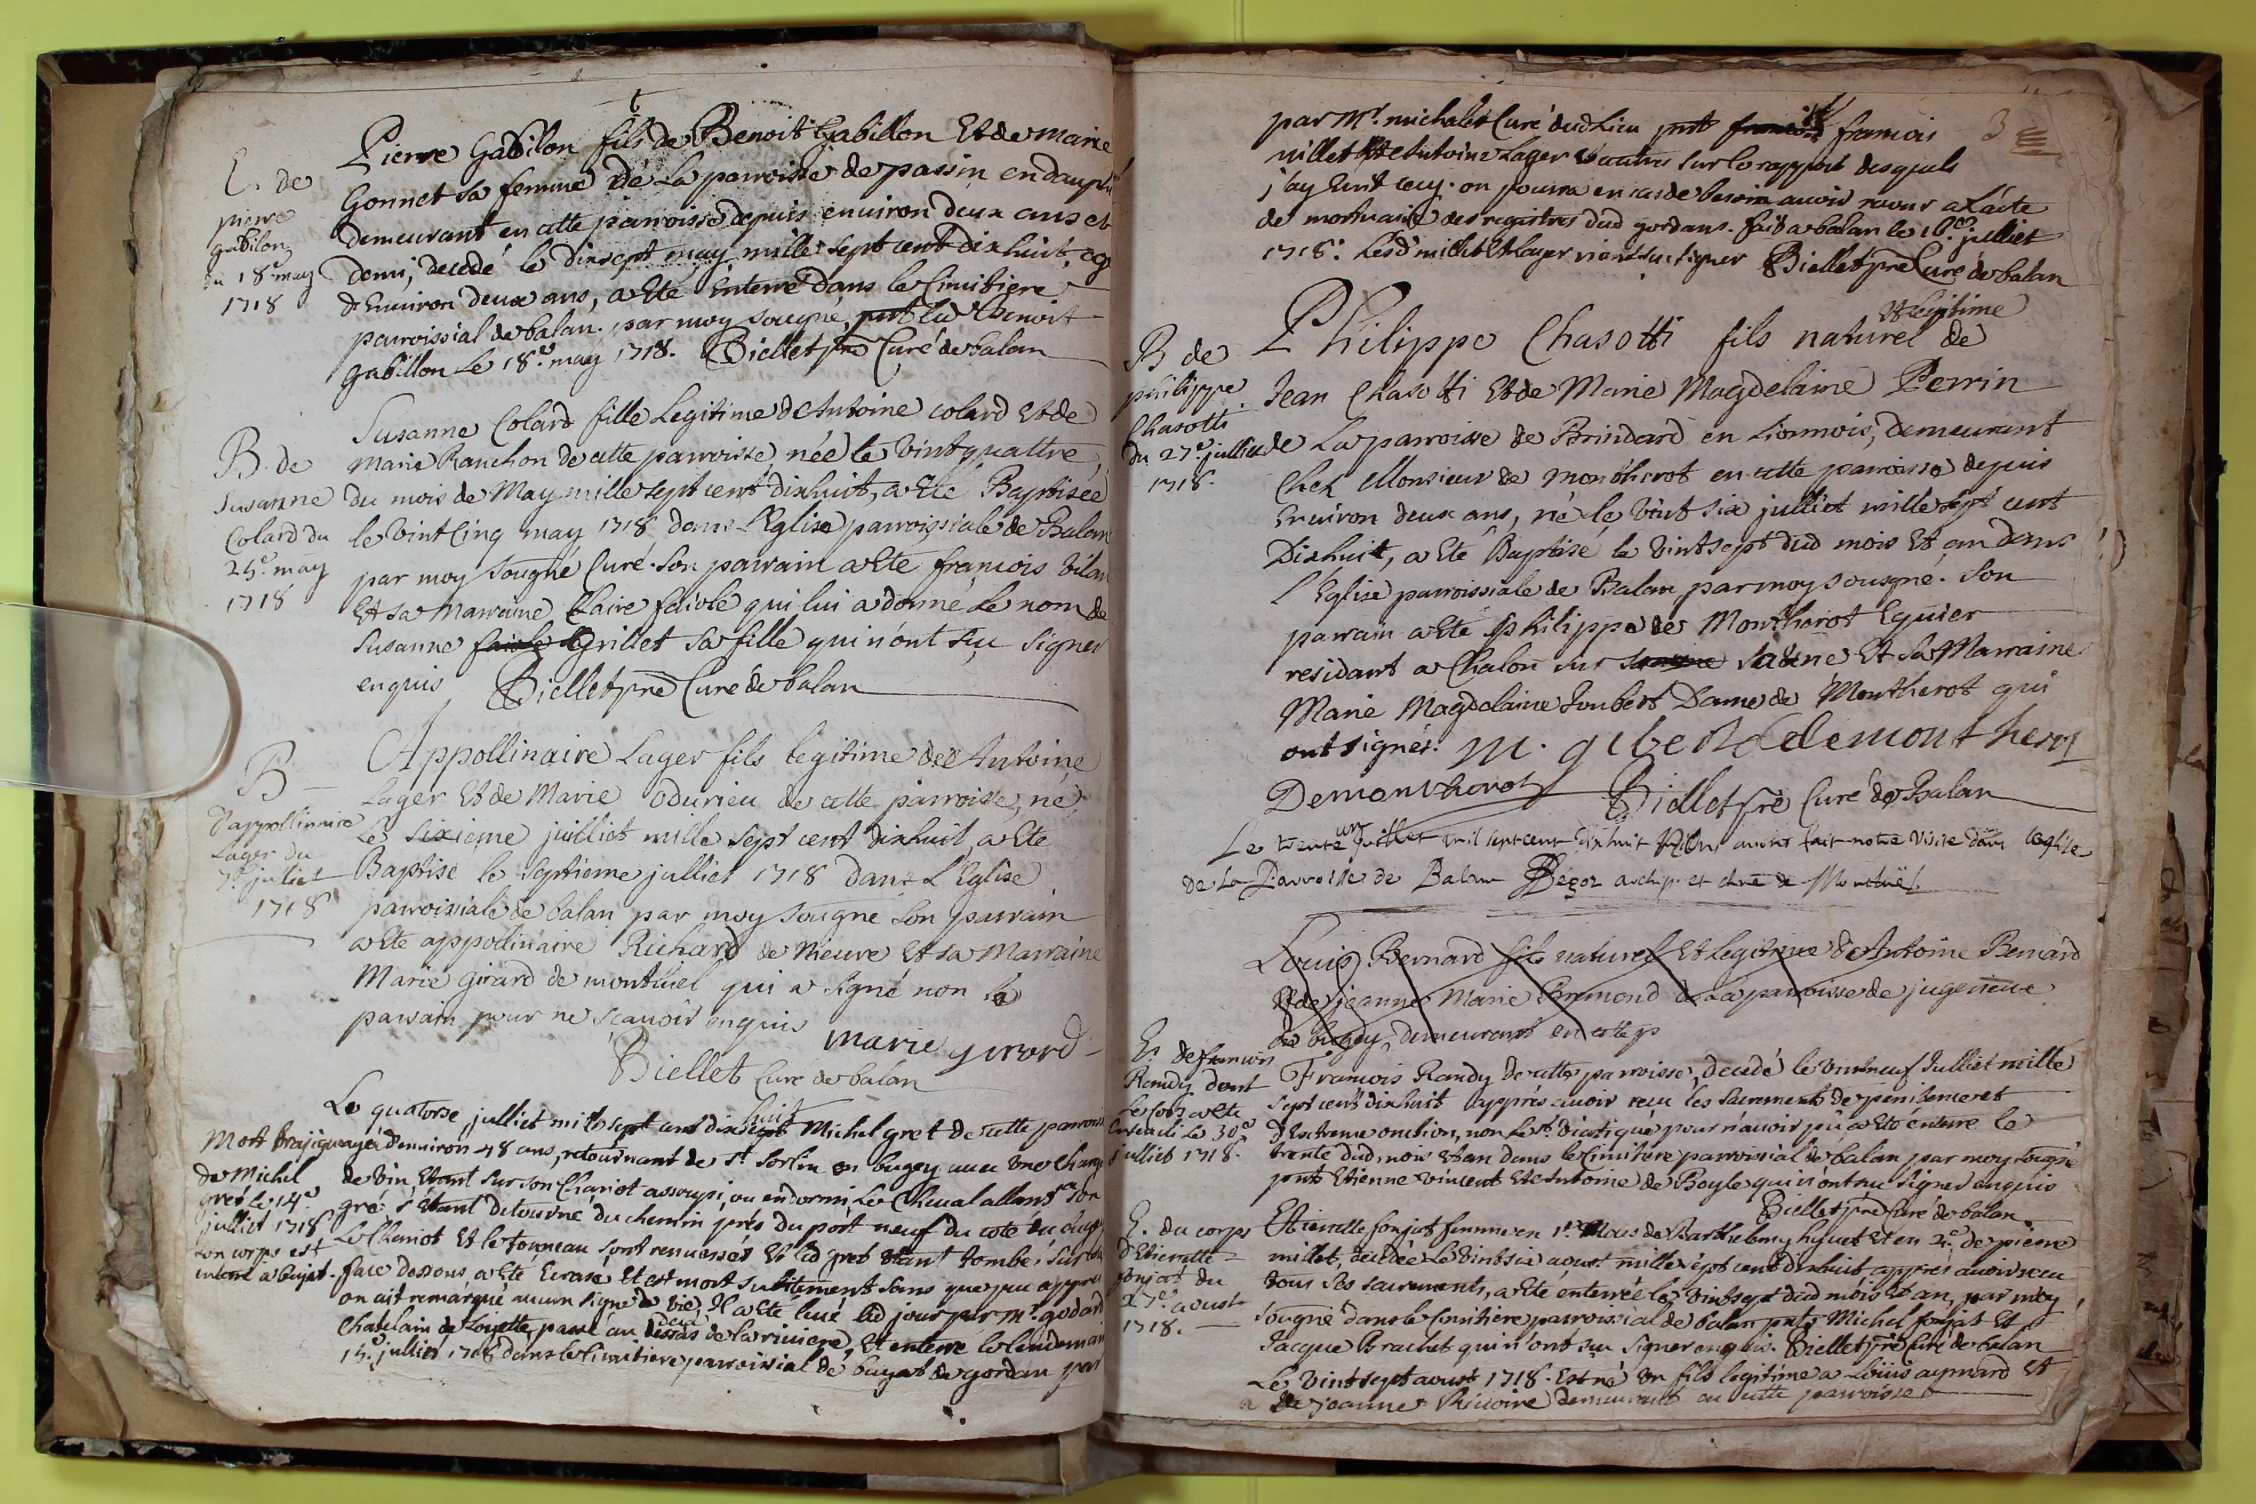 E. de
pierre
gabilon
du 18e may
1718
Pierre Gabilon fils de Benoit Gabillon Et de Marie
Gonnet sa femme de La parroisse de passin en dauphi
demeurant en cette parroisse depuis environ deux ans et
demi, decedé le dixsept may mille sept cent dixhuit, ag
d'Environ deux ans, a Eté Enterré dans le Cimitiere
parroissial de balan. par moy sougné, pnt led Benoit
gabillon Le 18e. may 1718. Biellet pre Curé de balan
B. de
Susanne
Colard du
25e. may
1718
Susanne Colard fille Legitime d'Antoine colard Et de
Marie Ranchon de cette parroisse, née le vint quattre,
du mois de May mille sept cent dixhuit, a Eté Baptisée
le vint Cinq may 1718 dans L'Eglise parroissiale de Balan
par moy sougné Curé. son parrain a Eté francois vilan
Et sa Marraine Claire faivle qui lui a donné Le nom de
Susanne faivle Grillet sa fille qui n'ont sçu signer
enquis Biellet pre Curé de balan
B
d'appollinaire
Lager du
7e. julliet
1718
Appollinaire Lager fils legitime de Antoine
Lager Et de Marie Odurieu de cette parroisse, né,
Le sixieme juilliet mille sept cent dixhuit, a Eté
Baptisé le septieme julliet 1718 dans L'Eglise
parroissiale de balan par moy sougné son parrain
a Eté appollinaire Richard de Nieure Et sa Marraine
Marie Girard de montluel qui a signé non le
parrain pour ne sçauoir enquis marie girard
Biellet Curé de balan
Mort
de Michel
gret le 14e
julliet 1718
son corps est
enterré a bujat.
Le quatorse julliet mille sept cent dixsept huit Michel gret de cette parroiss
agé d'environ 48 ans, retournant de st. sorlin en bugey auec une charge
de vin Etant sur son Chariot assoupi, ou endormi, Le Cheual allant a son
gré s'Etant detourné du chemin prés du port neuf du coté du bug
Le Chariot Et le tonneau sont renuersés Et led gret Etant tombé sur la
face dessous a Eté Ecrasé Et est mort subitement sans que peu appres
on ait remarqué aucun signe de vie, Il a Eté leué led jour par Mr. godard
Chatelain de Loyette, passé au dessus de la riuiere, Et enterré le lendemain
15e. julliet 1718 dans le Cimitiere parroissial de bujat de gordan par
3
par Mr. michalet Curé dud Lieu pnt francois francois
millet Et Antoine Lager Et autres sur le rapport desquels
j'ay Ecrit cecy. on pourra en cas de besoin auoir recour a L'acte
de mortuaire des registres dud gordans. fait a balan le 16e. julliet
1718. Lesd millet Et Lager n'ont sçu signer Biellet pre Curé de balan
B de
philippe
Chasotti
du 27e. julliet
1718.
Philippe Chasotti fils naturel Et legitime de
Jean Chasotti Et de Marie Magdelaine Perrin
de La parroisse de Brindard en Lionnois, demeurant
Chez Monsieur de Montherot en cette parroisse depuis
Environ deux ans, né le vint six julliet mille sept cent
Dixhuit, a Eté Baptisé le vint sept dud mois Et an dans
L'Eglise parroissiale de Balan par moy sousgné. Son
parrain a Eté philippe de Montherot Equier
residant a Chalon sur saone Et sa Marraine
Marie Magdelaine Joubert Dame de Montherot qui
ont signés. m. gibert demontherot
Demontherot Biellet pre Curé de Balan
Le trente un juillet mil sept cent dix huit Nous auons fait notre visite dans leglise
de La Parroisse de Balan Bégoz archip. et de Montluel
Louis Bernard fils naturel Et Legitime de Antoine Bernard
Et de jeanne Marie Commond de La parroisse de jugerieux
de bugey, demeurant en cette p
E. de francois
Randy dont
le corp a Eté
Enseueli Le 30e
julliet 1718.
Francois Randy de cette parroisse, decedé le vint neuf Julliet mille
sept cent dixhuit appres auoir reçu les sacrements de penitence et
d'Extreme onction, non Le st. viatique pour n'auoir pû a Eté enterré le
trente dud. mois Et an dans le Cimitiere parroissial de balan par moy sougné
pnts Etienne vincent Et Antoine de Boyle qui n'ont sçu signer enquis
Biellet pre Curé de balan.
E. du corps
d'Etiennette
fonjat du
27e aoust
1718.
Etiennette fonjat femme en 1re. Noces de Barthelemy huguet Et en 2e. de pierre
millet, decedée Le vint six aoust mille sept cent dixhuit appres auoir reçu
tous ses sacrements, a Eté enterrée le vint sept dud mois Et an, par moy
sougné dans le Cimitiere parroissial de balan pnts Michel fonjat Et
Jacque Brachet qui n'ont sçu signer enquis. Biellet pre Curé de balan
Le vint sept aoust 1718. Est né un fils legitime a Loüis aymard Et
a de jeanne Riuoire demeurant en cette parroisse